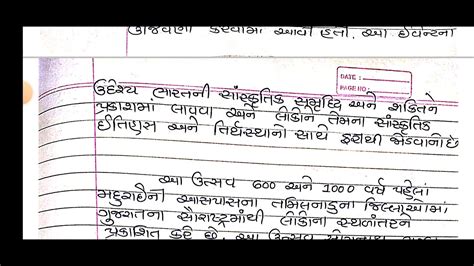 ઉજવણી કરવામાં આવી હતી. આ ઈવેન્ટના
DATE :
PAGE NO.
ઉદ્દેશ્ય ભારતની સાંસ્કૃતિક સમૃદ્ધિ અને શક્તિને
પ્રકાશમાં લાવવા અને લોકોને તેમના સાંસ્કૃતિક
ઈતિહાસ અને તિર્થસ્થાનો સાથે ફરીથી જોડવાનો છે
આ ઉત્સવ 600 અને 1000 વર્ષ પહેલા
મદુરાઈની આસપાસના તમિલનાડુના જિલ્લાઓમાં
ગુજરાતના સૌરાષ્ટ્રમાંથી લોકોના સ્થળાંતરને
પ્રકાશિત કરે છે. આ ઉત્સવ